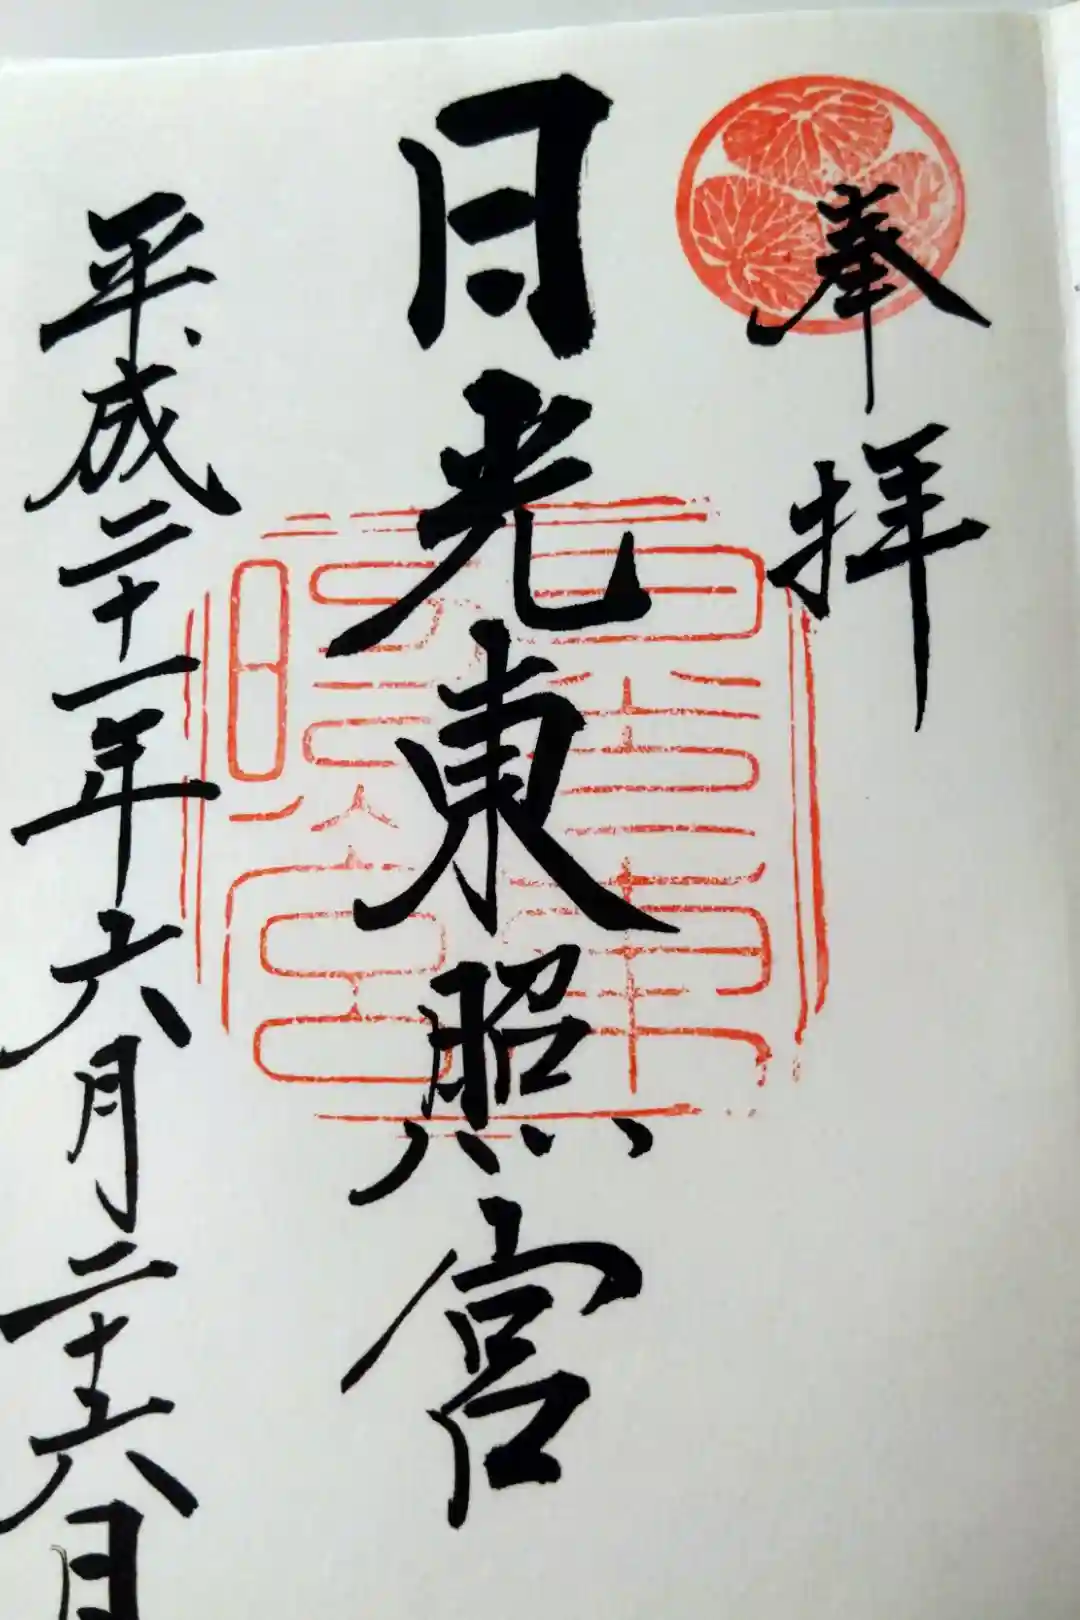 奉拝
日光東照宮
平成二十一年六月二十六日